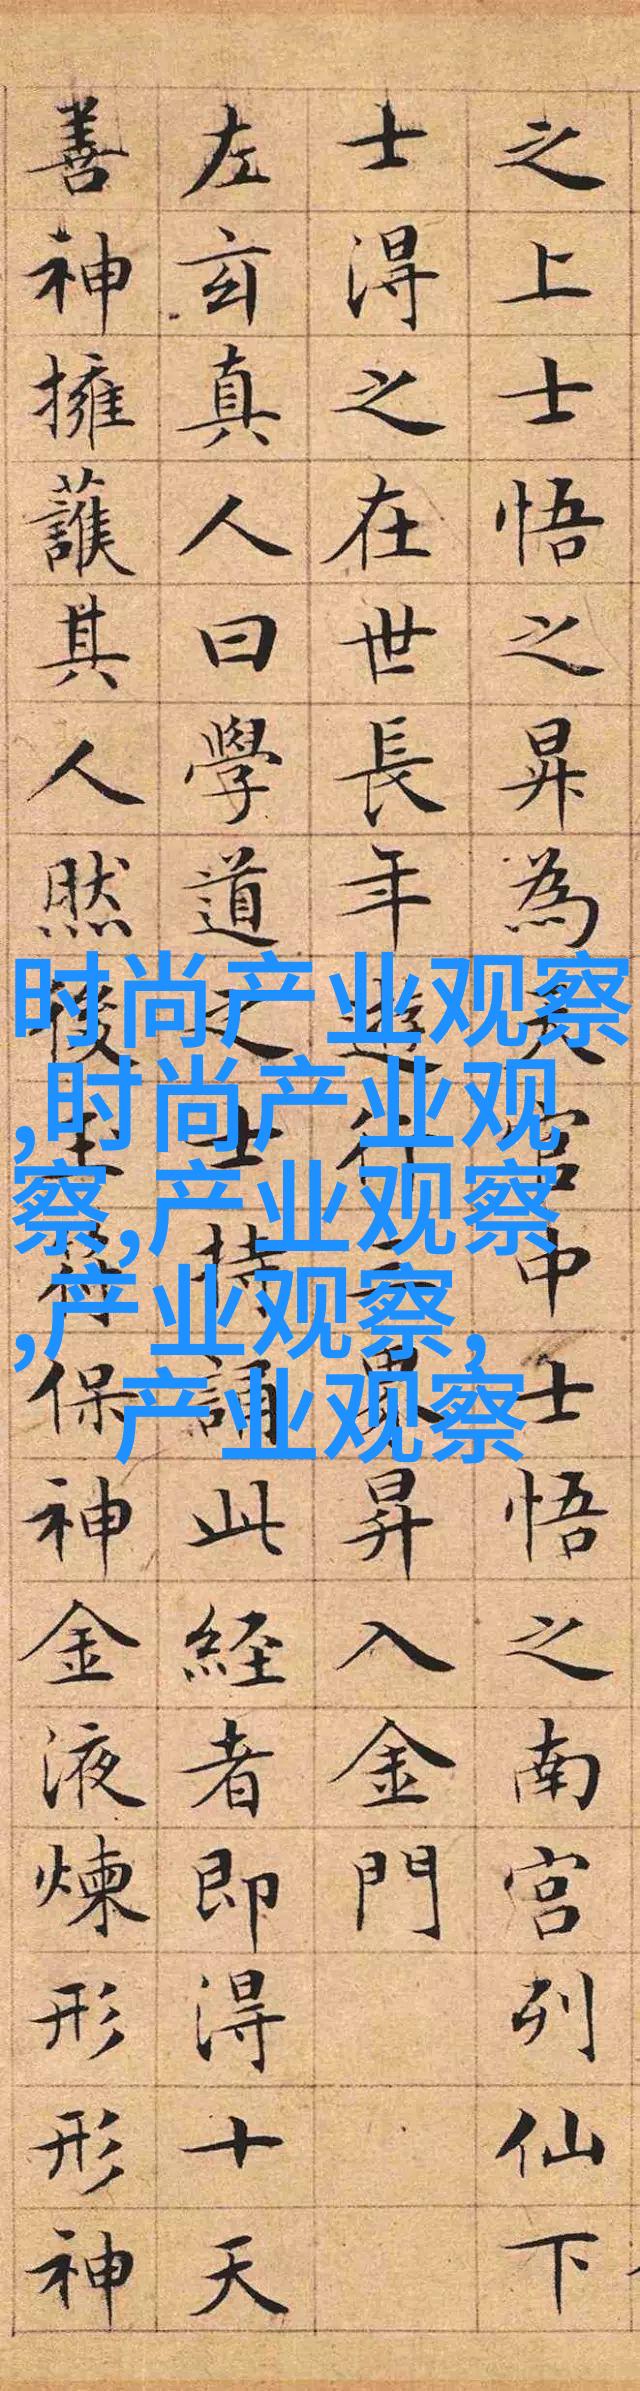 之上士悟之昇為天官中士悟之南宮列仙下
士淂之在世長年遊行三界昇入金門
左玄真人曰學道之士持誦此經者即淂十天
善神擁護其人然後玉符保神金液煉形形神
时尚产业观察
,时尚产业观
察,产业观察
,产业观察,
产业观察